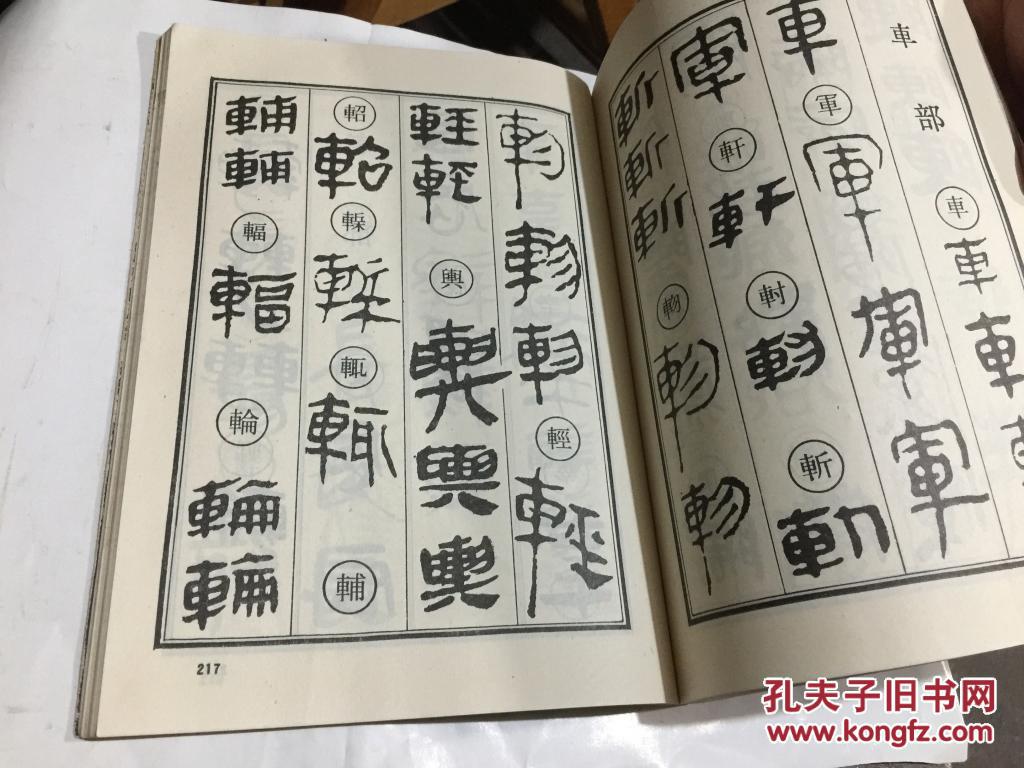 車部
車車車
車軍軍軍軍
軍軒軒斬斬
斬斬斬
輕輕
輕輕輿輿輿輿
軺軺輒輒輔
輔輔輻輻輪輪輪
217
孔夫子旧书网
www.kongfz.com